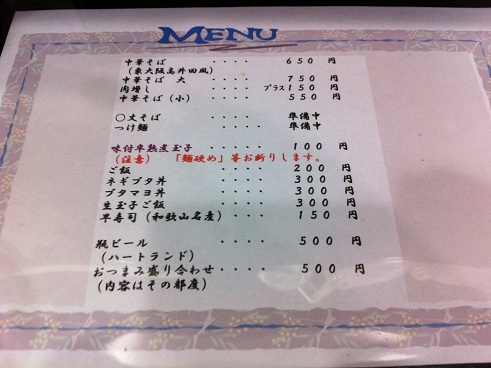 MENU
中華そば ・・・・ 650 円
(東大阪高井田風)
中華そば 大 ・・・・ 750 円
肉増し ・・・・ プラス150 円
中華そば(小) ・・・・ 550 円
○丈そば ・・・・ 準備中
つけ麺 ・・・・ 準備中
味付半熟煮玉子 ・・・・ 100 円
(注意) 「麺硬め」等お断りします。
ご飯 ・・・・ 200 円
ネギブタ丼 ・・・・ 300 円
ブタマヨ丼 ・・・・ 300 円
生玉子ご飯 ・・・・ 300 円
早寿司(和歌山名産) ・・・・ 150 円
瓶ビール ・・・・ 500 円
(ハートランド)
おつまみ盛り合わせ・・・・ 500 円
(内容はその都度)